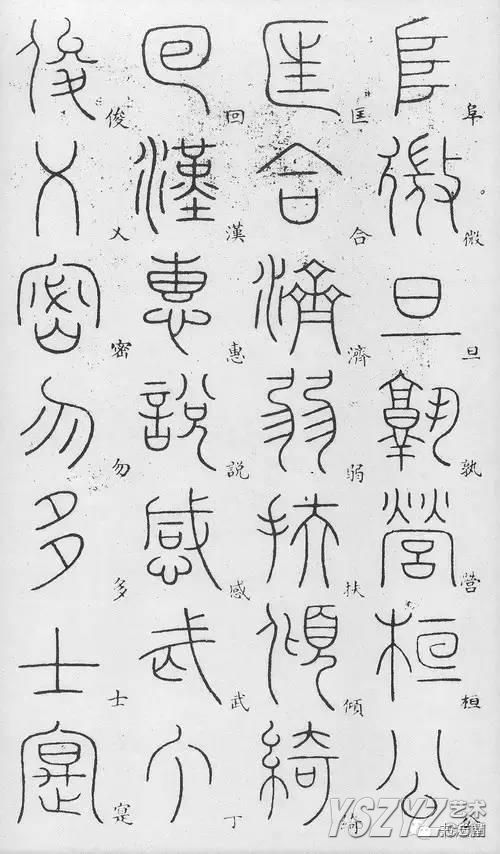 阜微旦孰營桓公
匡合濟弱扶傾綺
回漢惠説感武丁
俊乂密勿多士寔
YSZYZ艺术